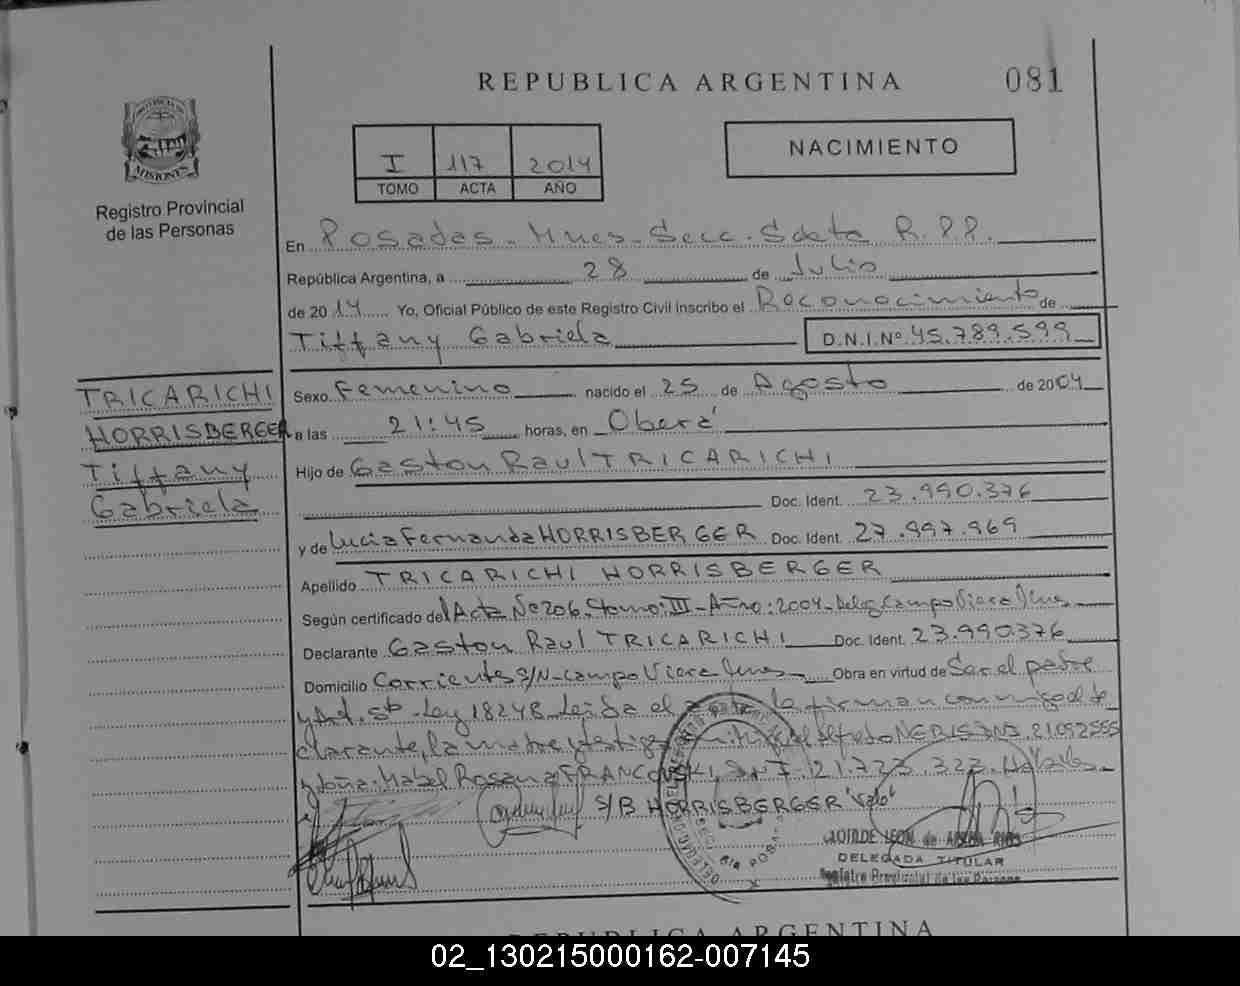 REPUBLICA ARGENTINA 081
PROVINCIA DE
MISIONES
Registro Provincial
de las Personas
I 117 2014
TOMO ACTA AÑO
NACIMIENTO
En Posadas - Mnes - Secc. Sdeta R.P.P.
República Argentina, a 28 de Julio
de 2014 Yo, Oficial Público de este Registro Civil inscribo el Reconocimiento de
Tiffany Gabriela D.N.I.Nº 45.789.599
TRICARICHI
HORRISBERGER
Tiffany
Gabriela
Sexo Femenino nacido el 25 de Agosto de 2004
a las 21:45 horas, en Oberá
Hijo de Gaston Raul TRICARICHI
Doc. Ident. 23.990.376
y de Lucia Fernanda HORRISBERGER Doc. Ident. 27.997.969
Apellido TRICARICHI HORRISBERGER
Según certificado del Acta Nº 206, tomo: III - Año: 2004 - Deleg. Campo Viera Mnes
Declarante Gaston Raul TRICARICHI Doc. Ident. 23.990.376
Domicilio Corrientes S/N - Campo Viera Mnes Obra en virtud de Ser el padre
y Art. 5to - Ley 18248 Leída el acta la firman conmigo el de
clarante, la madre y testigos Alfredo NERIS DNI 21.092.555
y doña Mabel Rosana FRANCOVSKI, DNI 21.723.323. Hábiles
S/B HORRISBERGER "vale"
LEON de
DELEGADA TITULAR
Registro Provincial de las Personas
REPUBLICA ARGENTINA
02_130215000162-007145